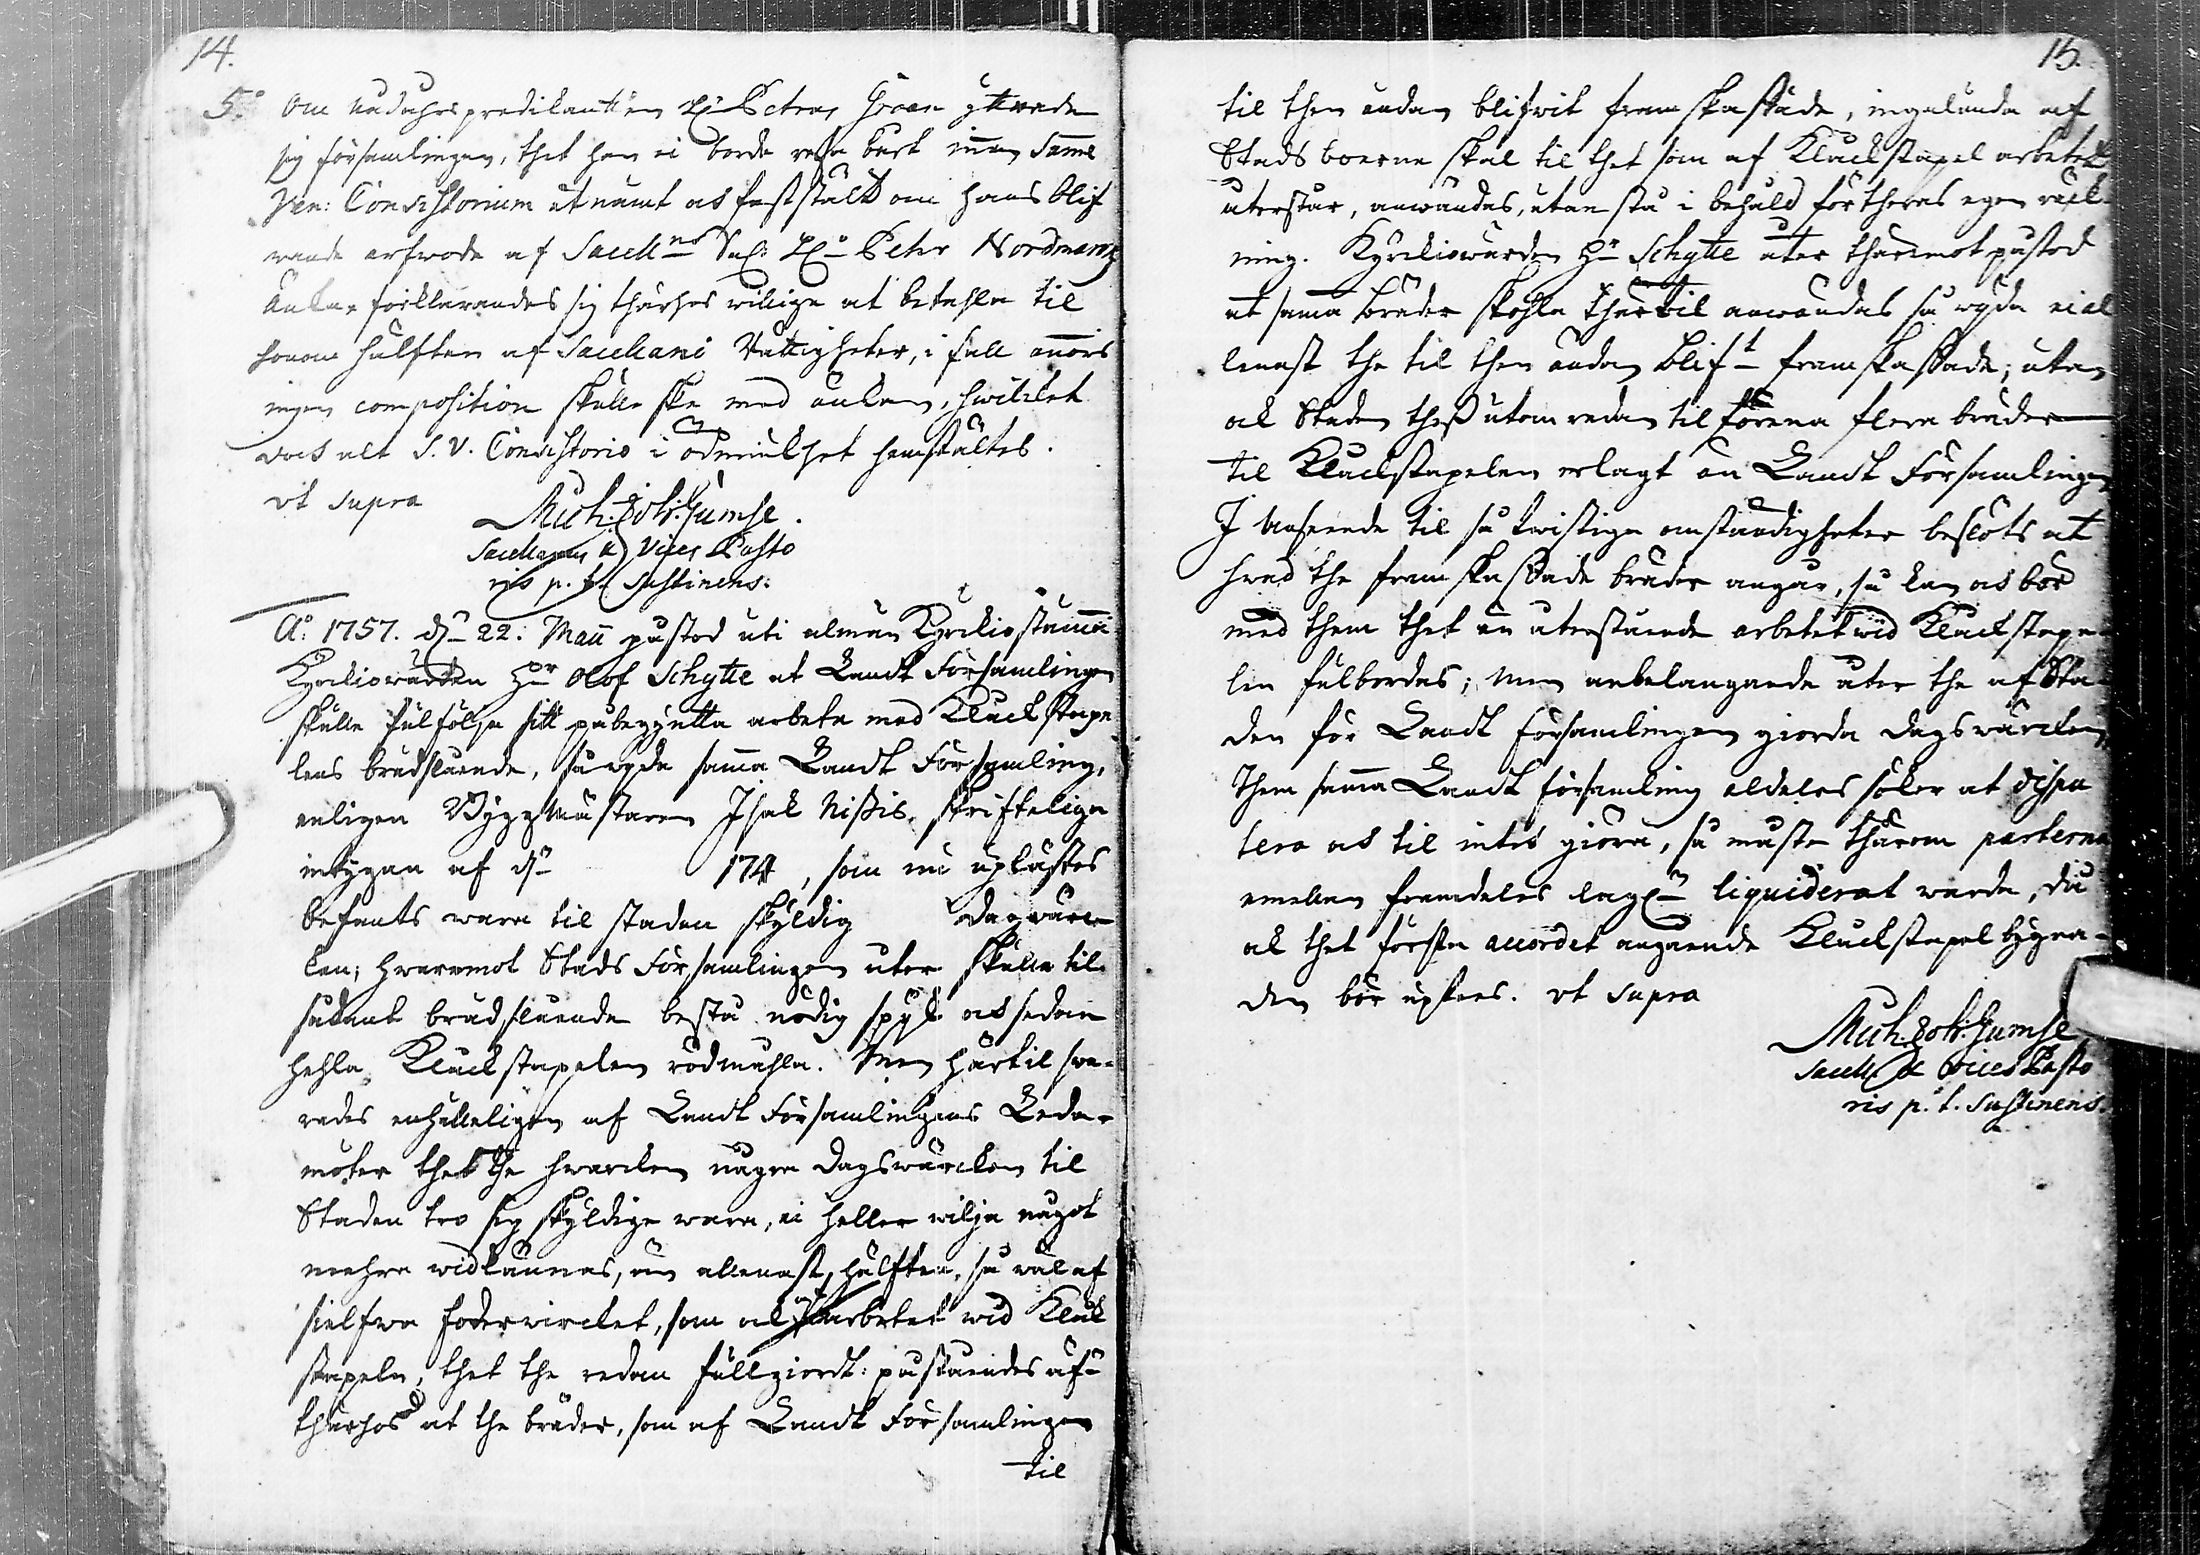 14.
5:o Om Nådåhrs predikanten H:r Petrus Groen yttrade
sig församlingen, thet han ei borde resa bort innan Samme
Ven: Consistorium utnämt ock faststält om hans blif
wande arfwode af Sacell:ns Sal: H:r Petr Nordmans
Enka, förklarandes sig thärhos willige at betahla til
honom hälften af Sacellani Rättigheter, i fall annors
ingen composition skulle ske med enkan, hwilcket
dock alt S. V. Consistorio i ödmiukhet hemstältes.
vt supra
Mich. Joh: Gumse.
Sacellanus & Vices Pasto
ris p. t. Sustinens:
A:o 1757. d: 22: Maii påstod uti almän Kyrckiostämma
Kyrckiowärden H:r Olof Schytte at Landt Församlingen
skulle fulfölja sitt påbegynta arbete med Klockstape
lens brädslående, såsom samma Landt Församling,
enligen Byggmästaren Isak Nissis skriftelige
intygan af d: 174 , som nu uplästes
befants wara til staden skyldig dagswärc
ken; hwaremot Stads Församlingen åter skulle til
sådant brädslående bestå nödig spik ock sedan
hehla Klockstapelen rödmåhla. Men härtil swa-
rades enhälleligen af Landt Församlingens Leda-
möter thet the hwarcken någre dagswärcken til
Staden tro sig skyldige wara, ei heller wilja något
mehra widkännas, än allenast hälften, så wäl af
sielfwa foderwircket, som ock arbetet wid Klock
stapeln, thet the redan fullgiordt: påståendes ock
thärhos at the bräder, som af Landt Församlingen
til
15.
til then ändan blifwit framskaffade, ingalunda af
Stadsboerne skal til thet som af Klockstapel arbetet
återstår, anwändas, utan stå i behåld för theras egen räk-
ning. Kyrckiowärden H:r Schytte åter thäremot påstod
at samma bräder skohla thertil anwändas så wida ei al
lenast the til then ändan blif:t framskaffade; utan
ock Staden thess utom redan tilförena flera bräder
til Klockstapelen erlagt än Landt Församlingen
I Anseende til så twistige omständigheter beslöts at
hwad the framskaffade bräder angår, så kan ock bör
med them thet än återstående arbetet wid Klockstape
len fulbordas; men anbelangande åter the af Sta-
den för Landt församlingen giorda dagswärcken,
Them samma Landt församling aldeles söker at dispu
tera ock til intet giöra, så måste thärom parterna
emellan framdeles lagl:n liquiderat warda, då
ock thet första accordet angående Klockstapel bygna-
den bör uptees. vt supra
Mich. Joh: Gumse
Sacell. & Vices Pasto
ris p. t. Sustinens.